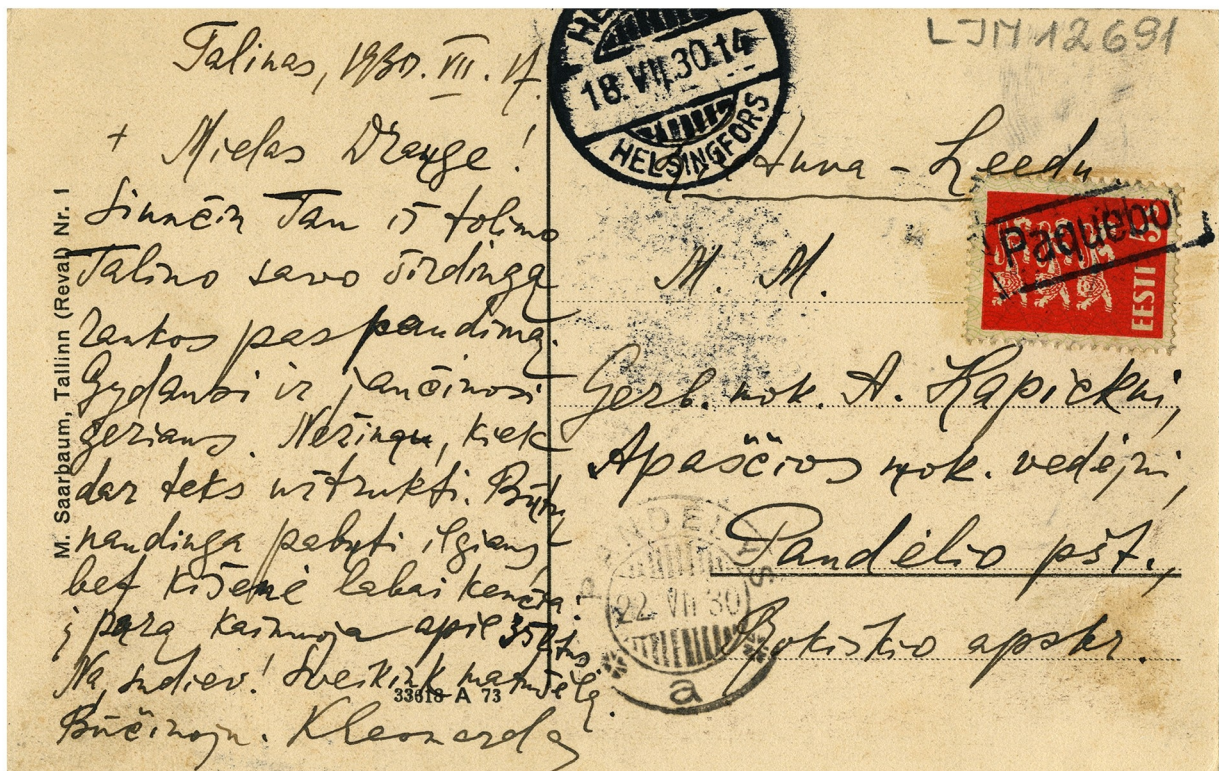 LJM 12691
Talinas, 1930. VII. 17.
+ Mielas Drauge!
Siunčiu Tau iš tolimo
Talino savo širdingą
rankos paspaudimą.
Gydausi ir jaučiuosi
geriaus. Nežinau, kiek
dar teks užtrukti. Būtų
naudinga pabūti ilgiaus,
bet kišenė labai kenčia:
į parą kainuoja apie 35 litus.
Na, sudiev! Sveikink mamõlę.
Bučiuoju. Kleonarda
M. Saarbaum, Tallinn (Reval) Nr. 1
33618 A 73
18.VII.30.14
HELSINGFORS
Leedu
Paquebo
EESTI 5
M. M.
Gerb. mok. A. Lapickui,
Apaščios mok. vedėjui,
Pandėlio pšt.,
Rokiškio apskr.
PANDĖLYS
22. VII 30
a